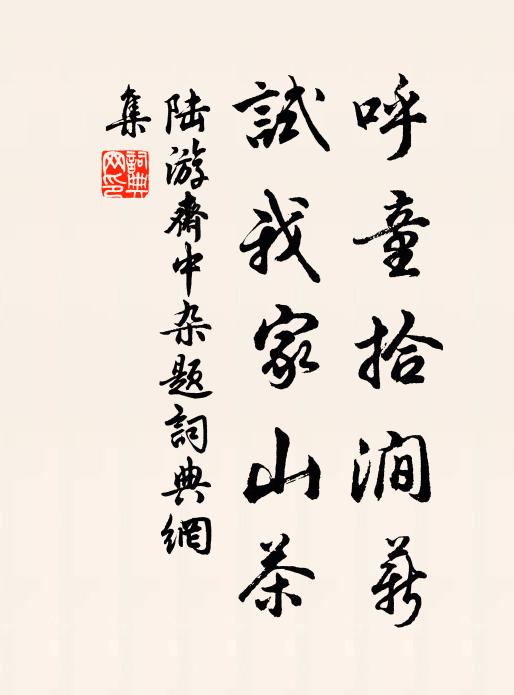 呼童拾澗薪
試我家山茶
陆游齋中杂题詞典網
集
詞典网印